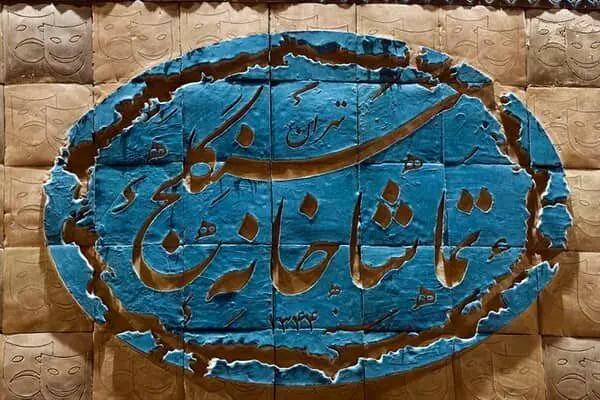 تماشاخانه
سنگلج
تهران
۱۳۴۴